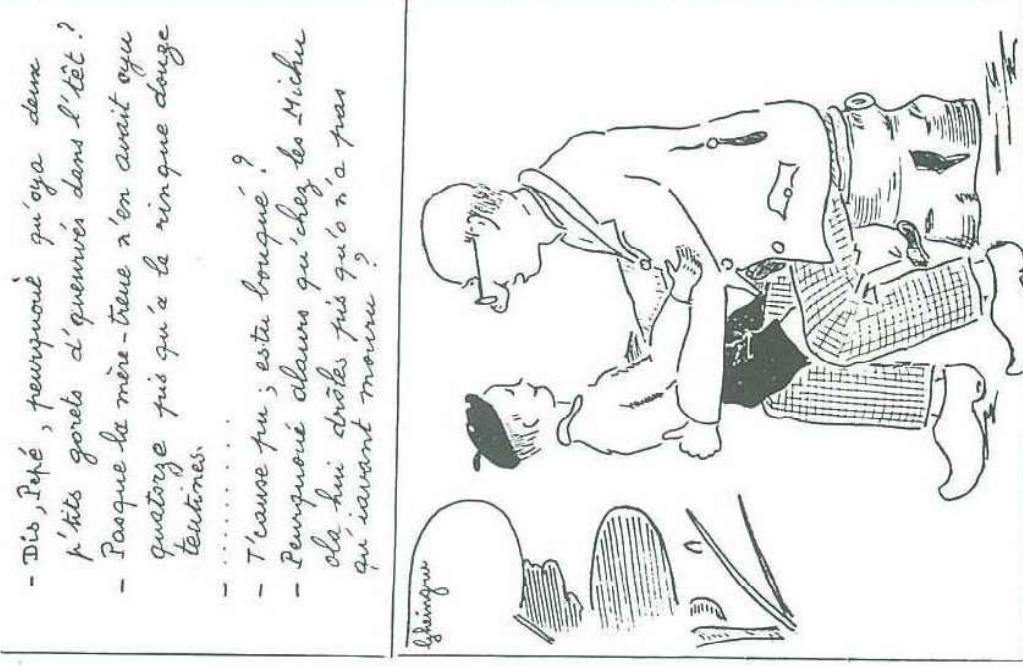 - Dis, Pépé, peurquoué qu'oya deux
p'tits gorets d'queurvés dans l'têt ?
- Pasque la mère-treue n'en avait oyu
quatorze pis qu'a le rinque douze
teutines.
- . . . . . . . . . .
- T'cause pu ; es tu bouqué ?
- Peurquoué alaurs qu'chez les Michu
ola hui drôles pis qu'o n'a pas
qu'iavant mouru ?